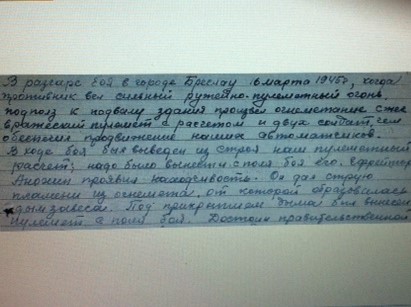 В разгаре боя в городе Бреслау 6 марта 1945г, когда
противник вел сильный ружейно-пулеметный огонь,
подполз к подвалу здания огнеметание сжег
вражеский пулемет с расчетом и двух солдат, чем
обеспечил продвижение наших автоматчиков.
В ходе боя был выведен из строя наш пулеметный
расчет; надо было вынести с поля боя его. Ефрейтор
Анохин проявил находчивость. Он дал струю
пламени из огнемета, от которой образовалась
дымзавеса. Под прикрытием дыма был вынесен
пулемет с поля боя. Достоин правительственной